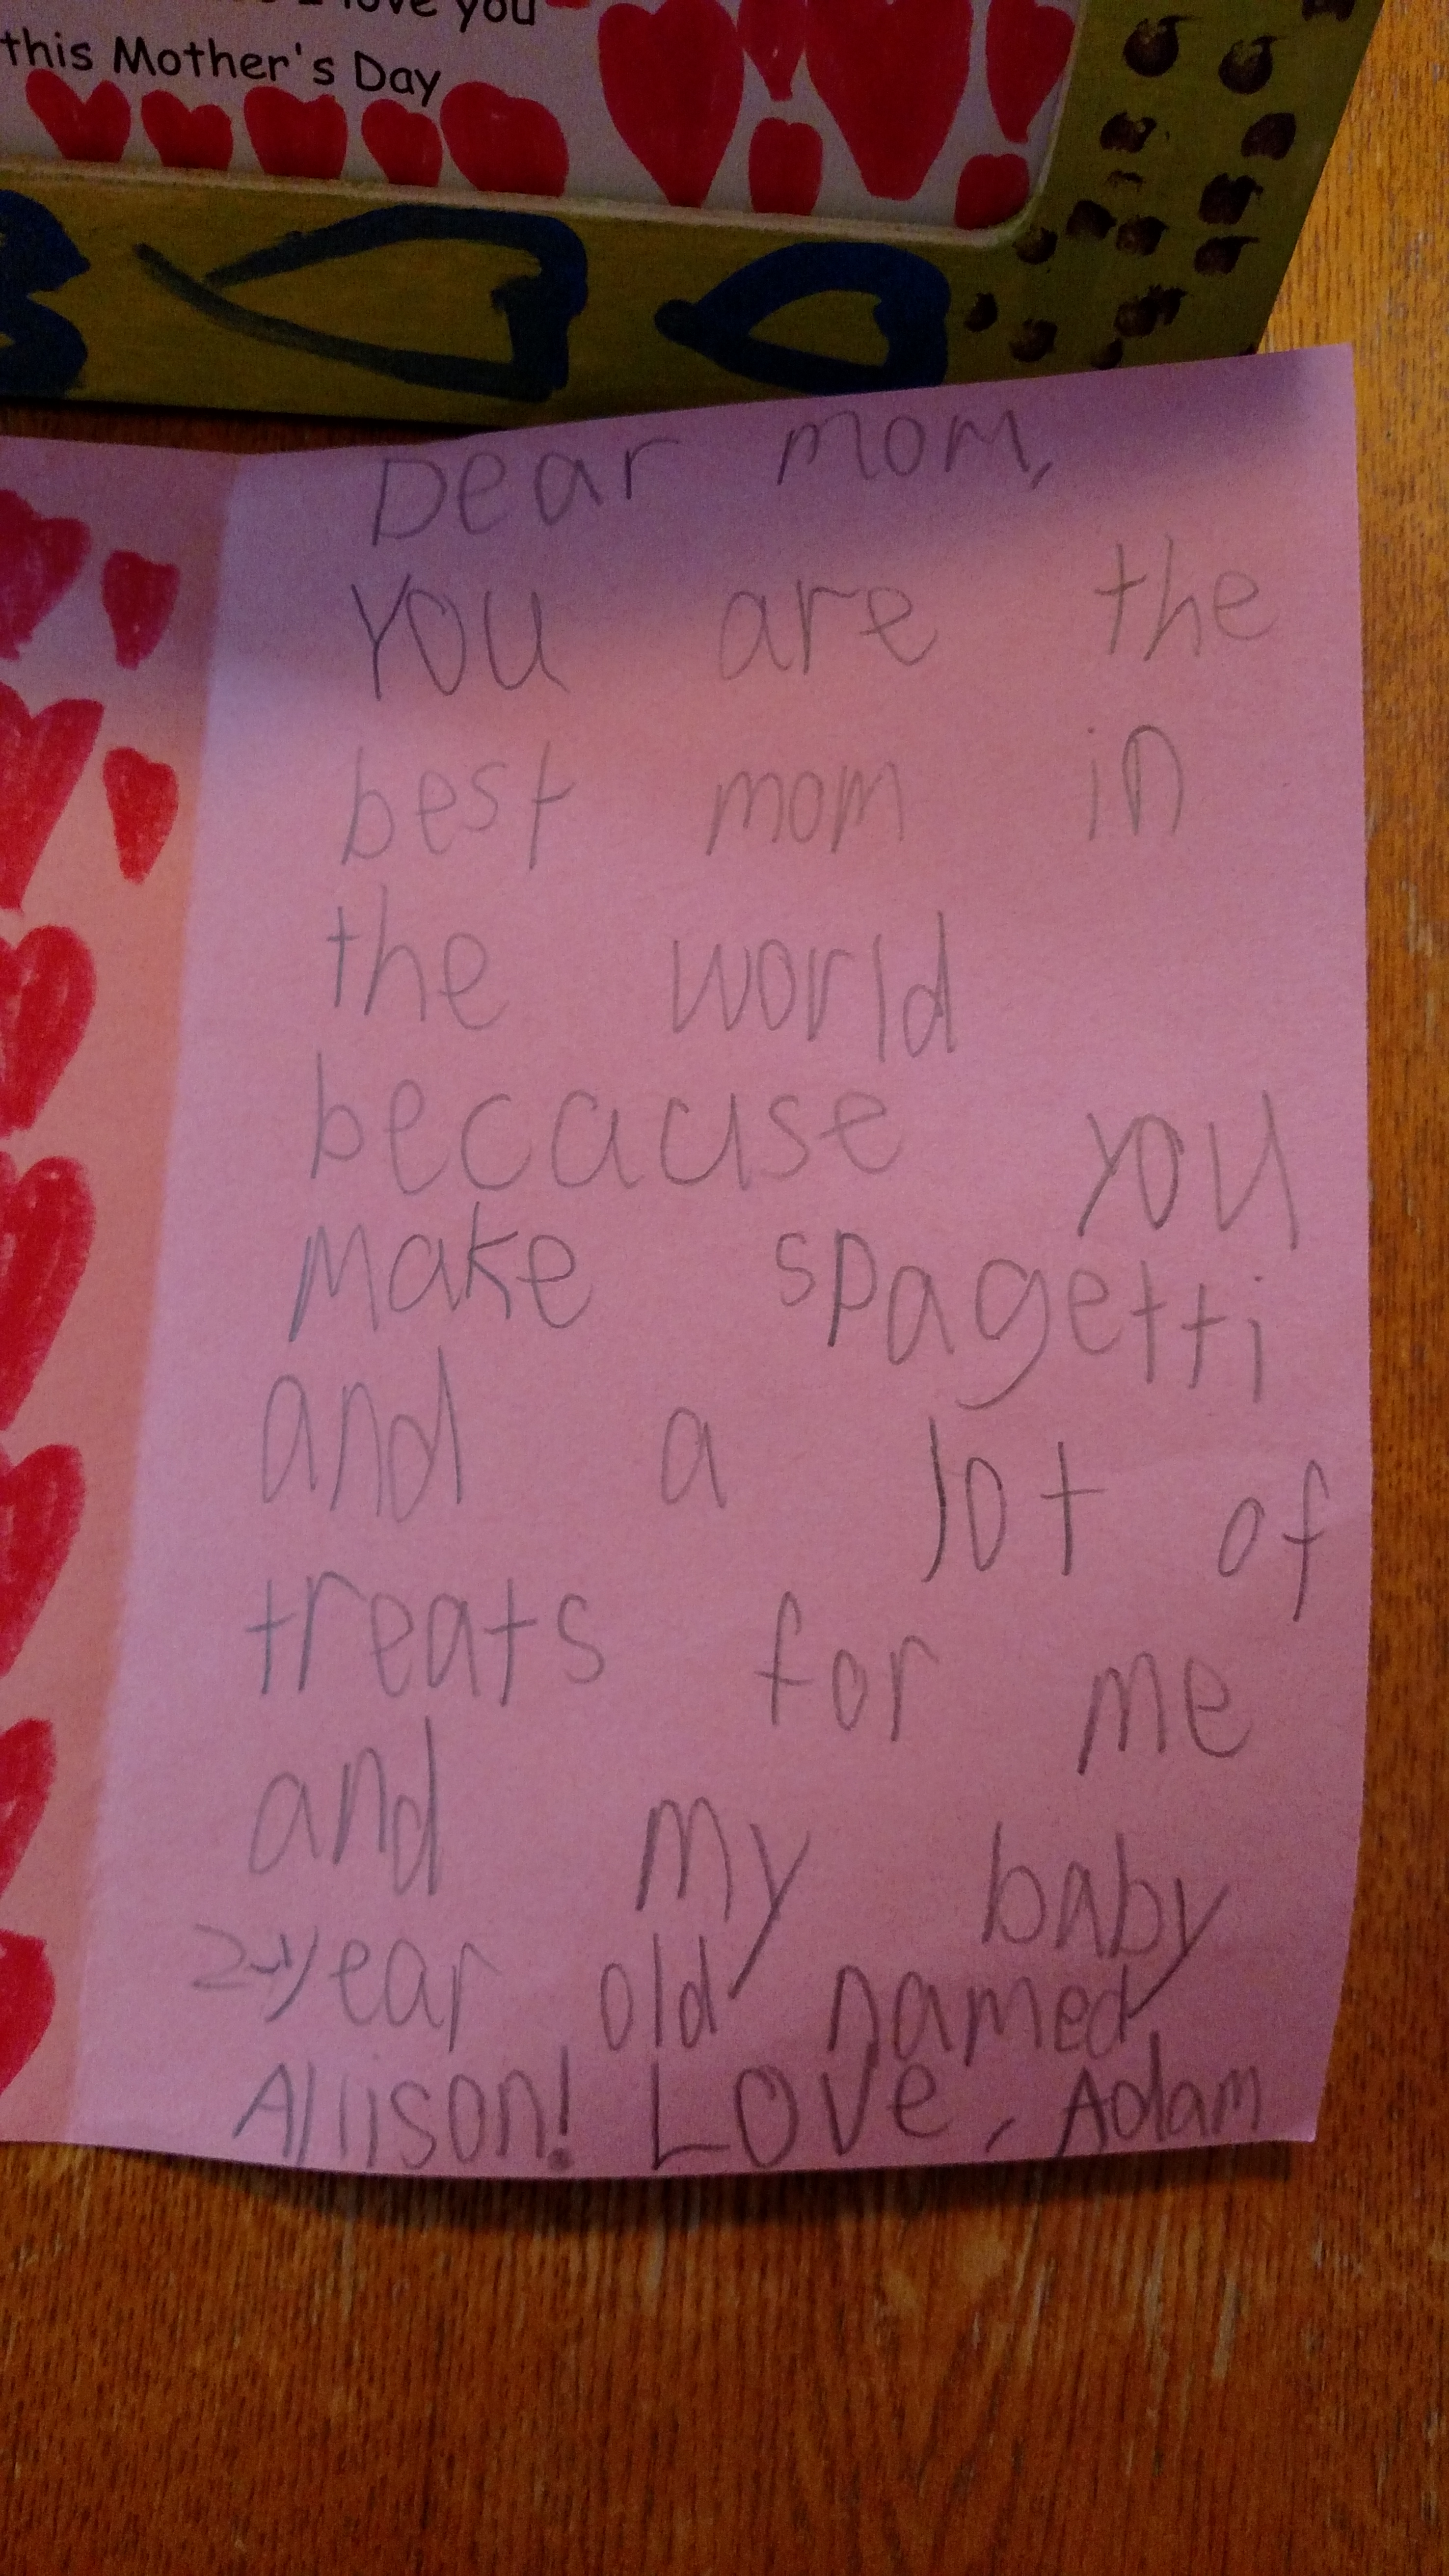 love you
this Mother's Day
Dear mom,
You are the
best mom in
the world
because you
make spagetti
and a lot of
treats for me
and my baby
2-year old named
Allison! Love, Adam